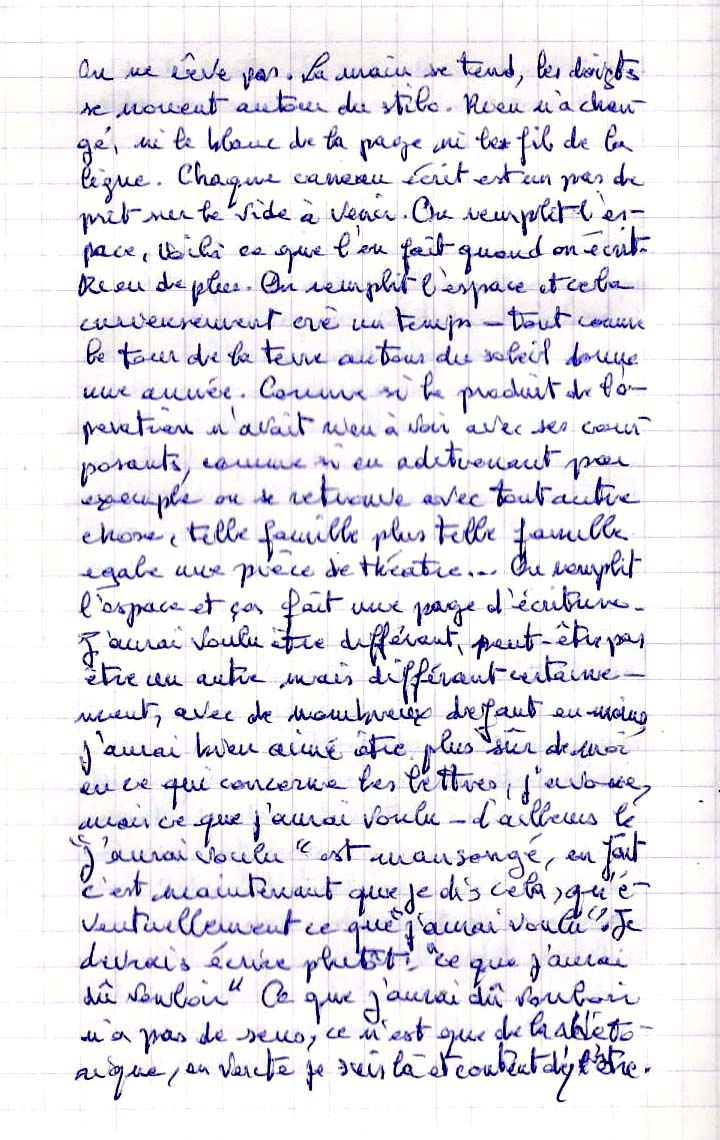 On ne rêve pas. La main se tend, les doigts
se nouent autour du stilo. Rien n'a chan-
gé, ni le blanc de la page ni le fil de la
ligne. Chaque carreau écrit est un pas de
prit sur le vide à venir. On remplit l'es-
pace, voilà ce que l'on fait quand on écrit.
Rien de plus. On remplit l'espace et cela
curieusement cré un temps – tout comme
le tour de la terre autour du soleil donne
une année. Comme si le produit de l'o-
pération n'avait rien à voir avec ses com-
posants, comme si en aditionant par
exemple on se retrouve avec tout autre
chose, telle famille plus telle famille
egale une pièce de théatre... On remplit
l'espace et ça fait une page d'écriture.
J'aurai voulu être différant, peut-être pas
être un autre mais différant certaine-
ment, avec de nombreux defaut en moins
j'aurai bien aimé être plus sûr de moi
en ce qui concerne les lettres, j'avoue,
mais ce que j'aurai voulu – d'ailleurs le
"j'aurai voulu" est mansongé, en fait
c'est maintenant que je dis cela, qu'é-
ventuellement ce que "j'aurai voulu". Je
divrais écrire plutôt: "ce que j'aurai
dû vouloir" Ce que j'aurai dû vouloir
n'a pas de sens, ce n'est que de la réto-
rique, en verité je suis là et content d'y être.